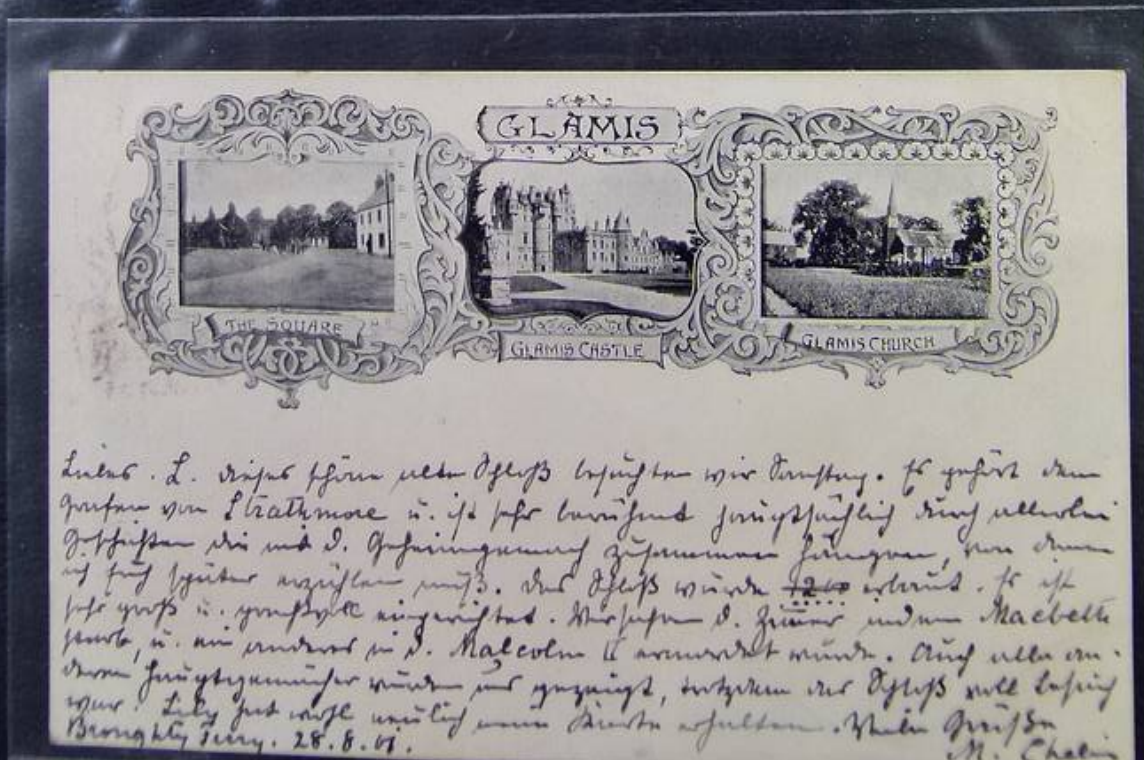 GLAMIS
THE SQUARE
GLAMIS CASTLE
GLAMIS CHURCH
Liebes. L. dieses schöne alte Schloß besuchten wir Samstag. Es gehört dem
Grafen von Strathmore u. ist sehr berühmt hauptsächlich durch allerlei
Geschichten die mit d. Geheimgemach zusammen hängen, von denen
ich Euch später erzählen muß. Das Schloß wurde erbaut. Es ist
sehr groß u. prachtvoll eingerichtet. Wir sahen d. Zimmer indem Macbeth
starb, u. ein anderes in d. Malcolm II ermordet wurde. Auch alle an-
deren Hauptgemächer wurden uns gezeigt, trotzdem das Schloß voll Besuch
war. Lily hat wohl neulich meine Karte erhalten. Viele Grüße
Broughty Ferry. 28.8.01.
M.